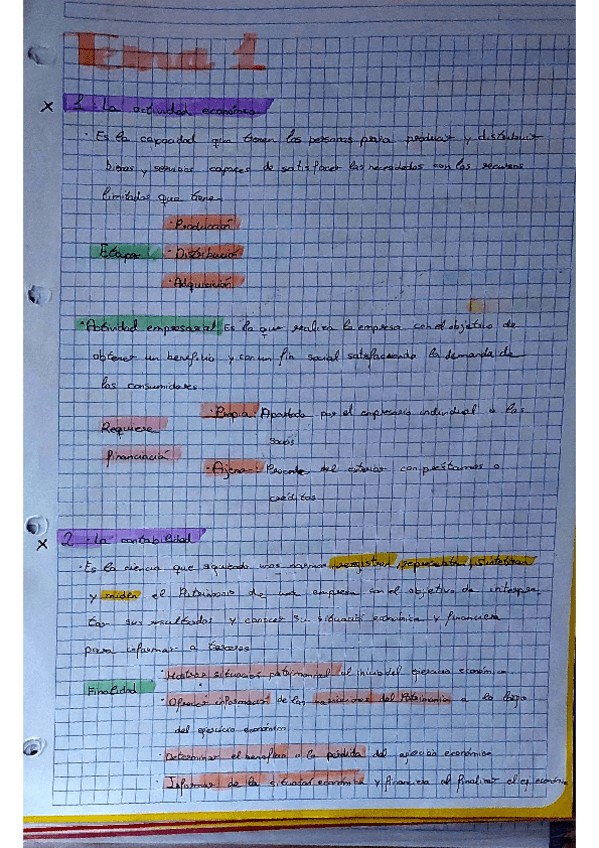 Tema 1
x 1. La actividad económica
· Es la capacidad que tienen las personas para producir y distribuir
bienes y servicios capaces de satisfacer las necesidades con los recursos
limitados que tiene
· Producción
Etapas · Distribución
· Adquisición
· Actividad empresarial Es la que realiza la empresa con el objetivo de
obtener un beneficio y con un fin social satisfaciendo la demanda de
los consumidores
Requiere · Propia: Aportada por el empresario individual o los
socios
financiación · Ajena: Procede del exterior con préstamos o
créditos
x 2. La contabilidad
· Es la ciencia que siguiendo unas normas, registran, representan, sintetizan
y miden el Patrimonio de una empresa con el objetivo de interpre
tar sus resultados y conocer su situación económica y financiera
para informar a terceros
· Mostrar situación patrimonial al inicio del ejercicio económico
Finalidad · Ofrecer información de las variaciones del Patrimonio a lo largo
del ejercicio económico
· Determinar el beneficio o la pérdida del ejercicio económico
· Informar de la situación económica y financiera al finalizar el ej económico